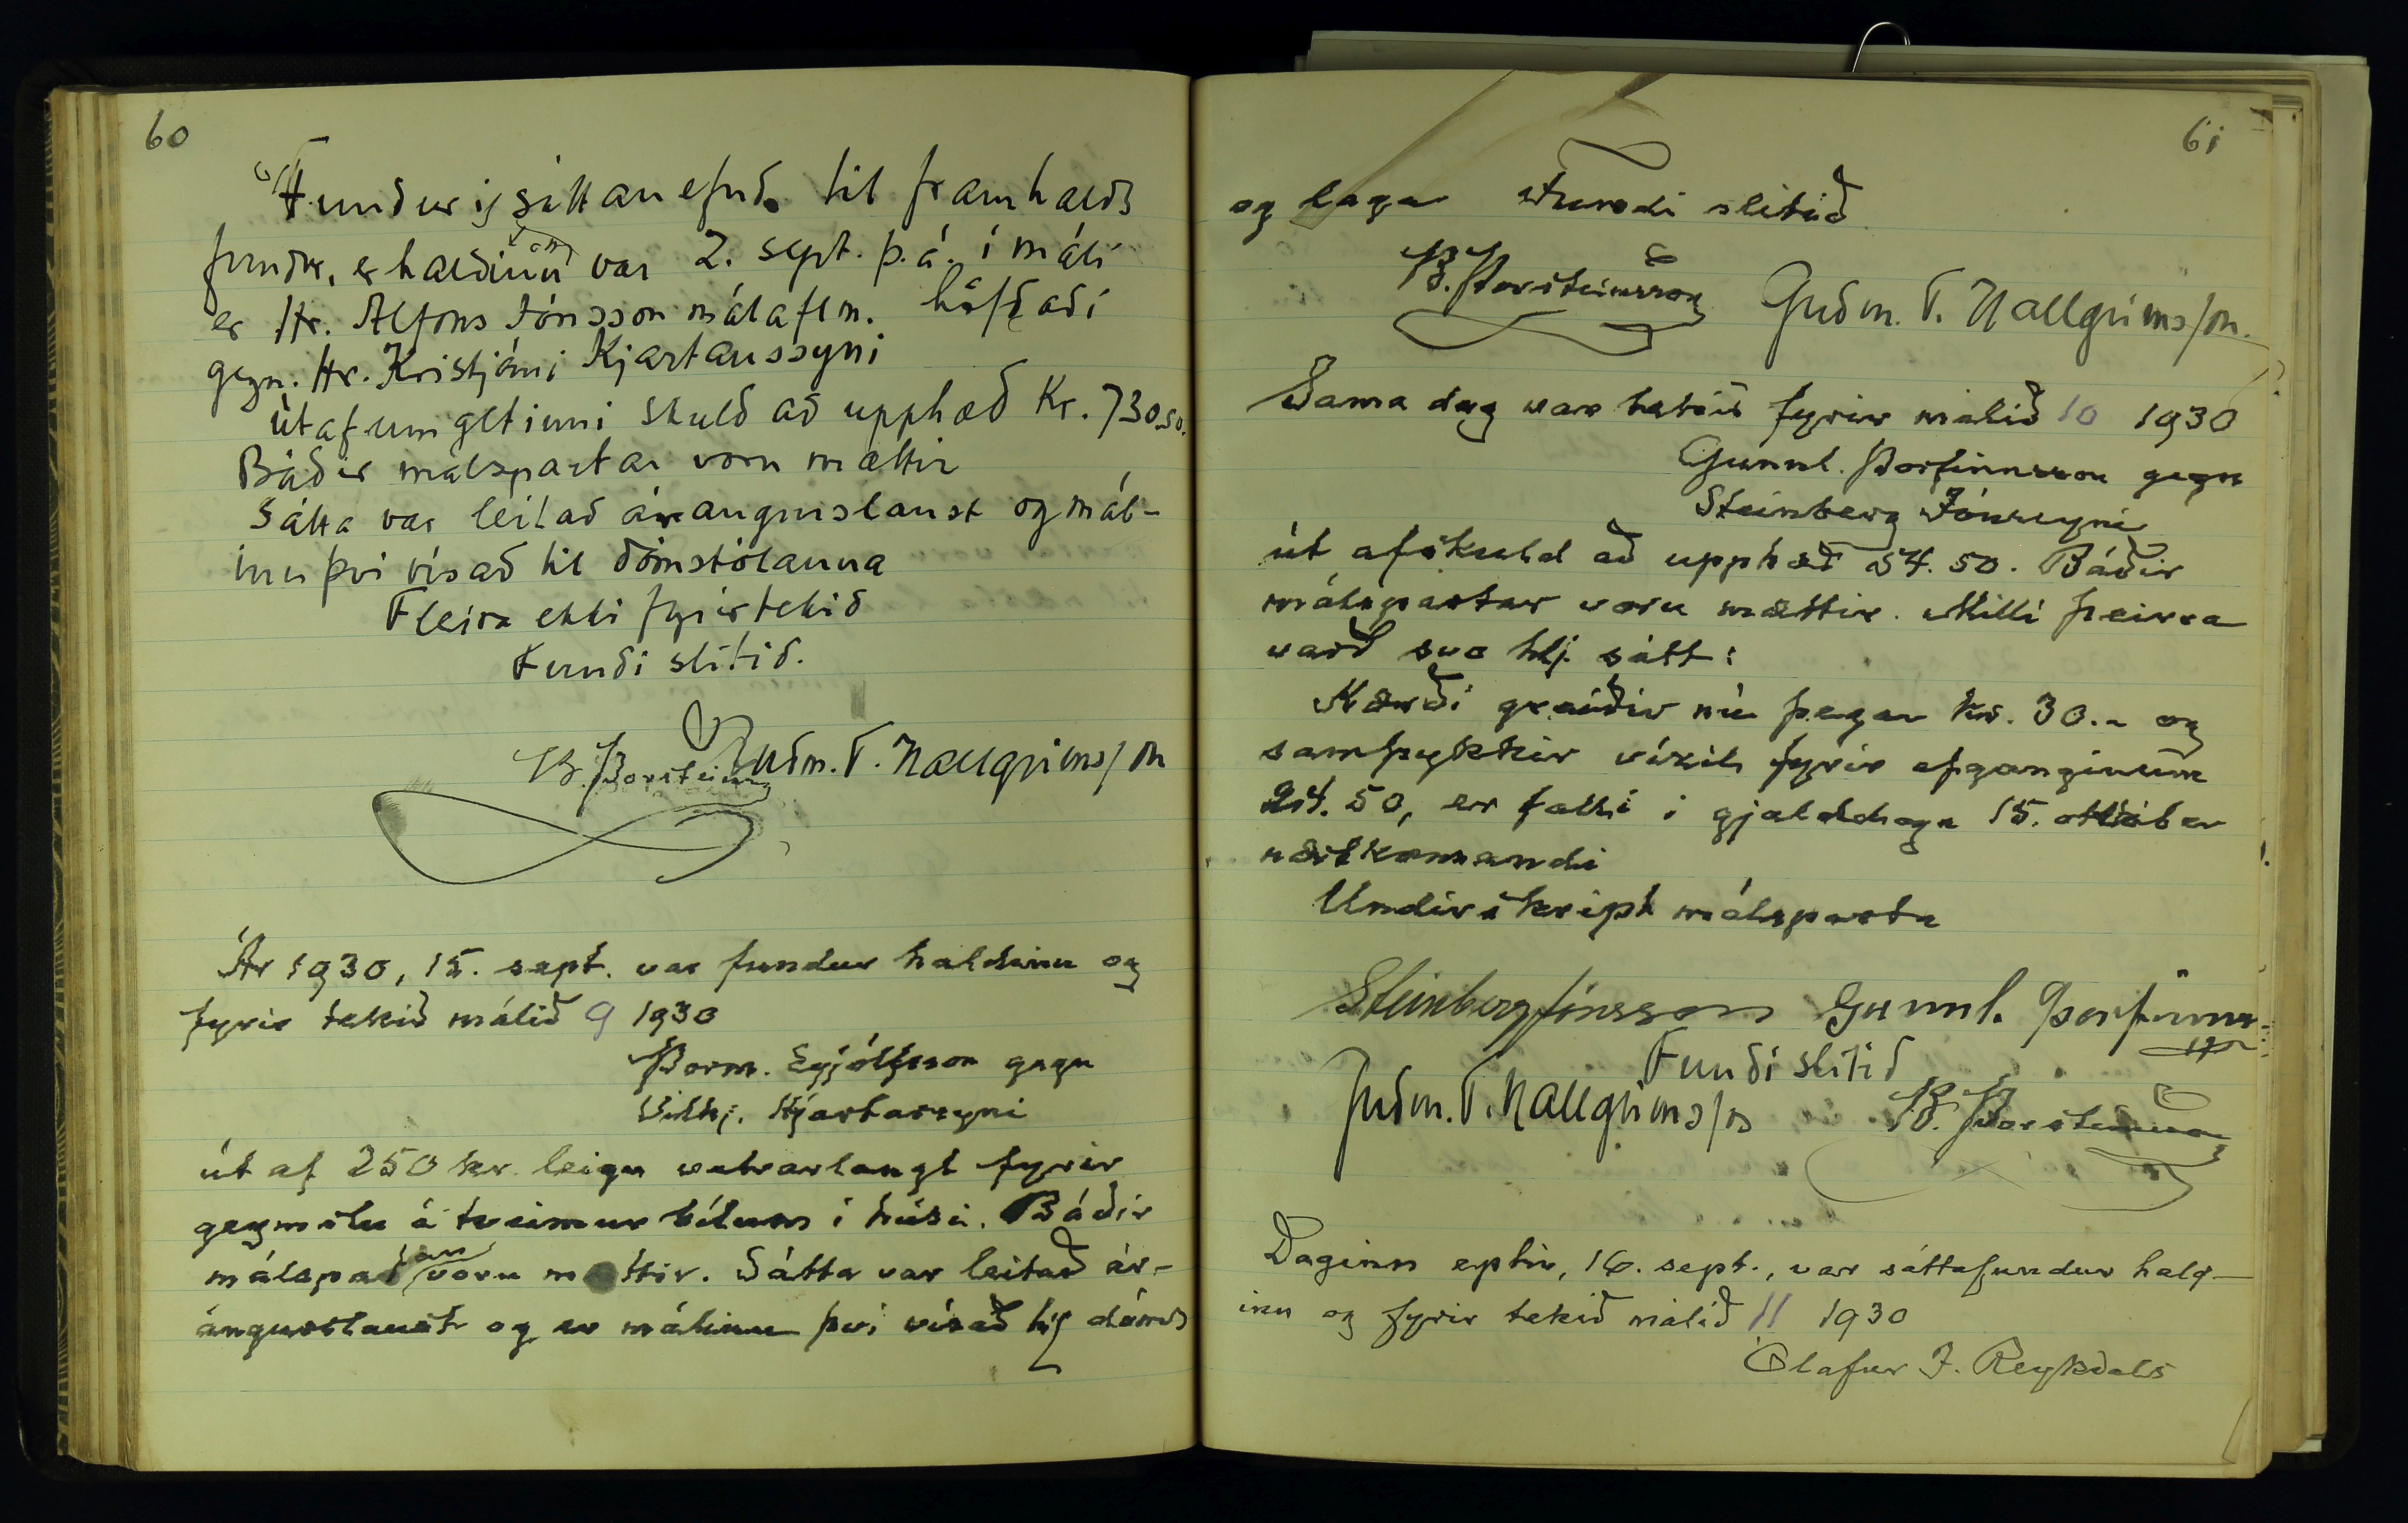 60
Fundur í sáttanefnd til framhalds
fundar, er haldinn var 2. sept. þ.á. í máli
er Hr. Alfons Jónsson málaflm. höfðaði
gegn. Hr. Kristjáni Kjartanssyni
út af umgetinni skuld að upphæð Kr. 730.50.
Báðir málspartar voru mættir
Sátta var leitað árangurslaust og mál-
inu því vísað til dómstólanna
Fleira ekki fyrirtekið
Fundi slitið.
B. Þorsteinsson Guðm. T. Hallgrímsson
Ár 1930, 15. sept. var fundur haldinn og
fyrir tekið málið 9 1930
Þorm. Eyjólfsson gegn
Vilhj. Hjartarsyni
út af 250 kr. leigu vetrarlangt fyrir
geymslu á tveimur bílum í húsi. Báðir
málspartar voru mættir. Sátta var leitað ár-
angurslaust og er málinu því vísað til dóms
61
og laga Fundi slitið
B. Þorsteinsson Guðm. T. Hallgrímsson.
Sama dag var tekið fyrir málið 10 1930
Gunnl. Þorfinnsson gegn
Steinberg Jónssyni
út af skuld að upphæð 54.50. Báðir
málspartar voru mættir. Milli þeirra
varð svo hlj. sátt:
Kærði greiðir nú þegar kr. 30.- og
samþykkir víxil fyrir afganginum
24.50, er falli í gjalddaga 15. október
næstkomandi
Undirskript málsparta
Steinberg Jónsson Gunnl. Þorfinnsson
Fundi slitið
Guðm. T. Hallgrímsson B. Þorsteinsson
Daginn eptir, 16. sept., var sáttafundur hald-
inn og fyrir tekið málið 11 1930
Ólafur J. Reykdals